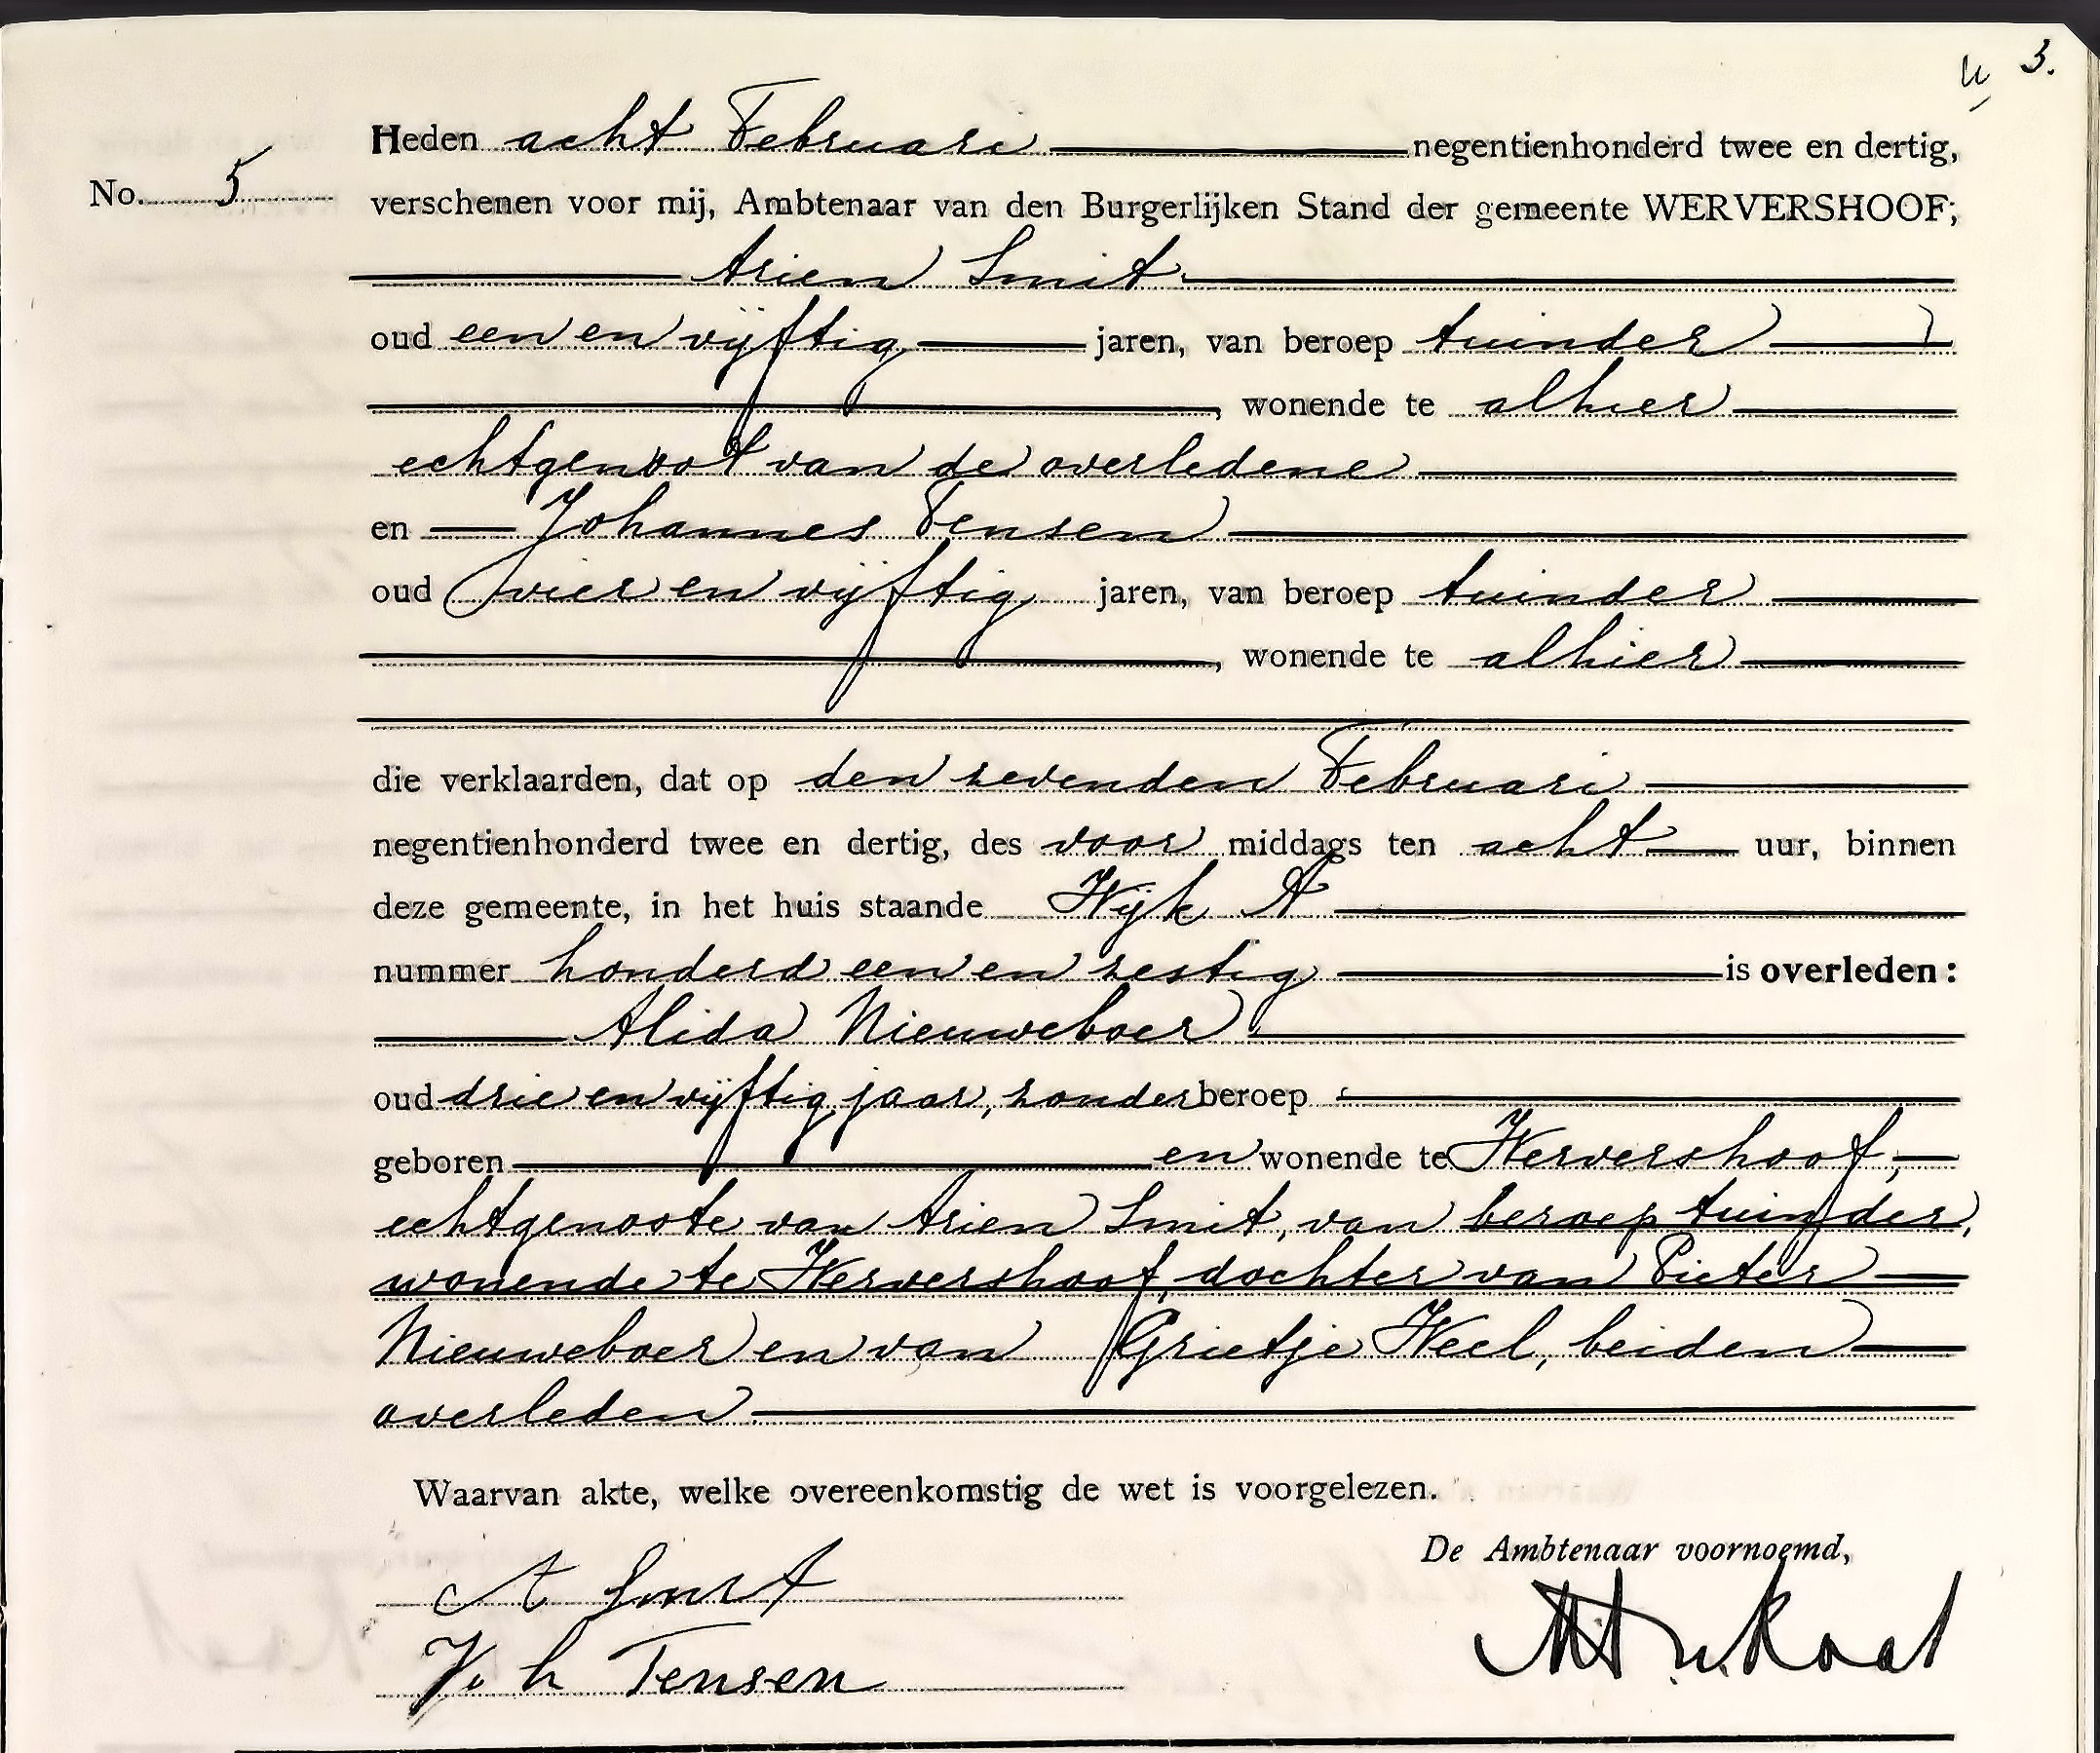 3.
Heden acht Februari negentienhonderd twee en dertig,
No. 5
verschenen voor mij, Ambtenaar van den Burgerlijken Stand der gemeente WERVERSHOOF;
Arien Smit
oud een en vijftig jaren, van beroep tuinder
, wonende te alhier
echtgenoot van de overledene
en Johannes Tensen
oud vier en vijftig jaren, van beroep tuinder
, wonende te alhier
die verklaarden, dat op den zevenden Februari
negentienhonderd twee en dertig, des voor middags ten acht uur, binnen
deze gemeente, in het huis staande Wijk A
nummer honderd een en zestig is overleden:
Alida Nieuweboer
oud drie en vijftig jaar, zonder beroep
geboren en wonende te Wervershoof,
echtgenoote van Arien Smit, van beroep tuinder,
wonende te Wervershoof, dochter van Pieter
Nieuweboer en van Grietje Weel, beiden
overleden
Waarvan akte, welke overeenkomstig de wet is voorgelezen.
De Ambtenaar voornoemd,
A Smit
Joh Tensen